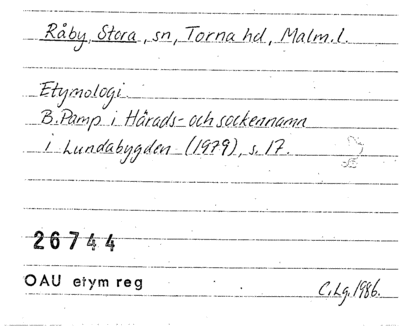 Råby, Stora, sn, Torna hd, Malm.l.
Etymologi.
B. Pamp i Härads- och sockennamn
i Lundabygden (1979), s. 17.
26744
OAU etym reg
C. Lg. 1986.